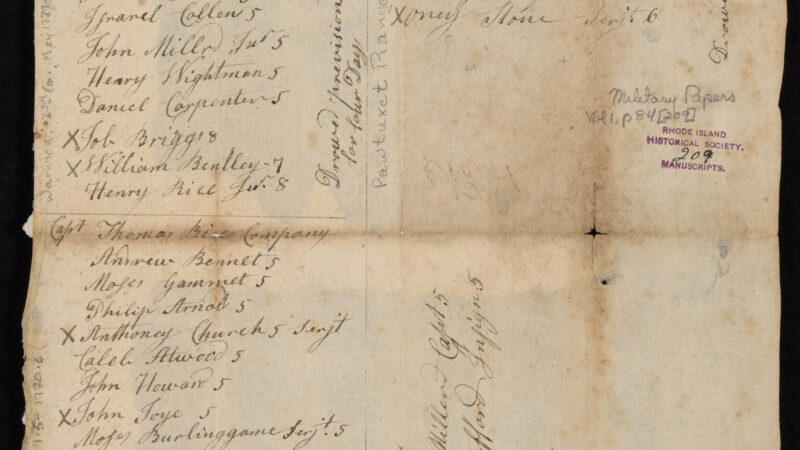 Israrel Collen 5
John Millrd Jur 5
Henry Wightman 5
Daniel Carpenter 5
X Job Briggs 8
X William Bentley - 7
Henry Rice Jur. 8
Drawd provision
for four Day
Pawtuxet Rang
Capt Thomas Rices Company
Andrew Bennet 5
Moses Gammet 5
Philip Arnold 5
X Anthoney Church 5 Serjt
Caleb Atwood 5
John Howard 5
X John Joye 5
Moses Burlinggame Serjt. 5
X Oney Stone Serjt 6
Military Papers
Vol 1, p 84 [209]
RHODE ISLAND
HISTORICAL SOCIETY.
209
MANUSCRIPTS.
Millerd Capt 5
Insign 5